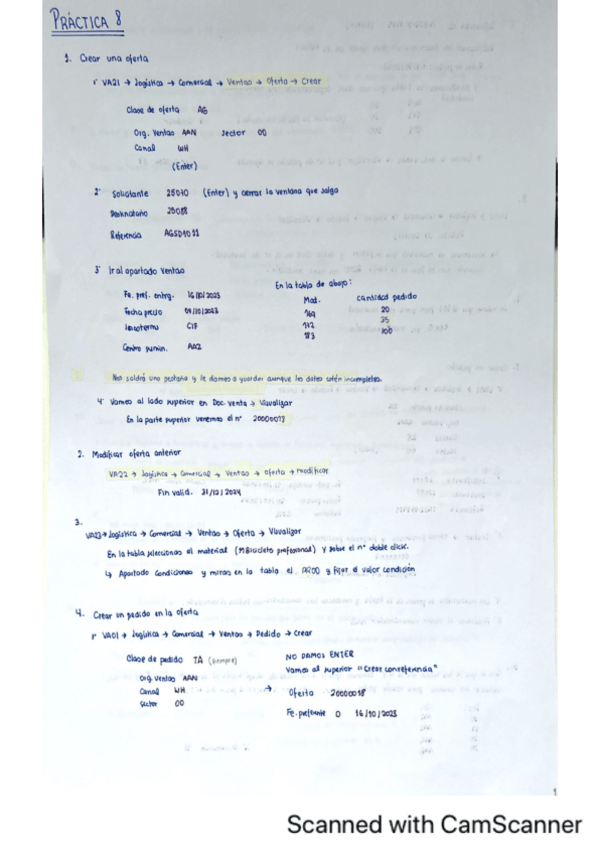 PRÁCTICA 8
1. Crear una oferta
1º VA21 → Logística → Comercial → Ventas → Oferta → Crear
Clase de oferta AG
Org. Ventas AAN Sector 00
Canal WH
(Enter)
2º Solicitante 25010 (Enter) y cerrar la ventana que salga
Destinatario
Referencia
3º Ir al apartado Ventas
Fe. pref. entreg. 16/10/2023
Fecha precio 09/10/2023
Incoterms CIF
Centro sumin. AA02
En la tabla de abajo:
Mat. cantidad pedido
20
112 35
113 100
Nos saldrá una pestaña y le damos a guardar aunque los datos estén incompletos.
4º Vamos al lado superior en Doc. venta → Visualizar
En la parte superior veremos el nº
2. Modificar oferta anterior
VA22 → Logística → Comercial → Ventas → Oferta → Modificar
Fin valid. 31/12/2024
3.
VA23 → Logística → Comercial → Ventas → Oferta → Visualizar
En la tabla seleccionas el material (profesional) y sobre el nº doble click.
↳ Apartado Condiciones y miras en la tabla el PR00 y fijar el valor condición
4. Crear un pedido en la oferta
1º VA01 → Logística → Comercial → Ventas → Pedido → Crear
Clase de pedido TA (siempre)
Org. Ventas AAN
Canal WH
Sector 00
NO DAMOS ENTER
Vamos al superior "Crear con referencia"
→ Oferta 20000018
Fe. pref. D 16/10/2023
1
Scanned with CamScanner